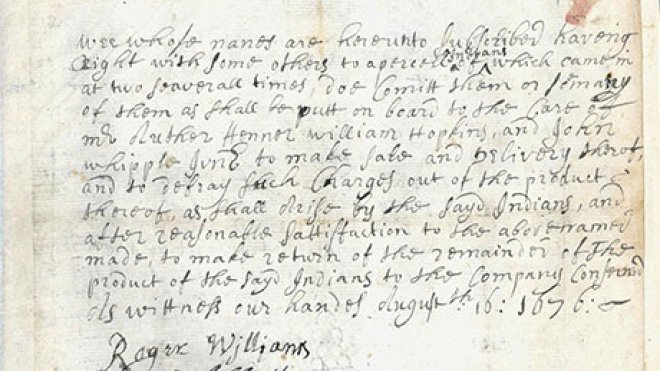 wee whose names are hereunto Subscribed haveing
Right with some others to a percell of Indians which came in
at two Severall times, doe Comitt them or So many
of them as shall be putt on board to the Care of
mr Auther Fenner William Hopkins, and John
whipple Junr to make Sale and Delivery therof,
and to defray Such Charges out of the product
thereof, as shall Arise by the Sayd Indians, and
after reasonable Sattisfaction to the abovenamed
made, to make return of the remainder of The
product of the Sayd Indians to the Company Conserned
As wittness our handes August th 16: 1676:
Roger Williams